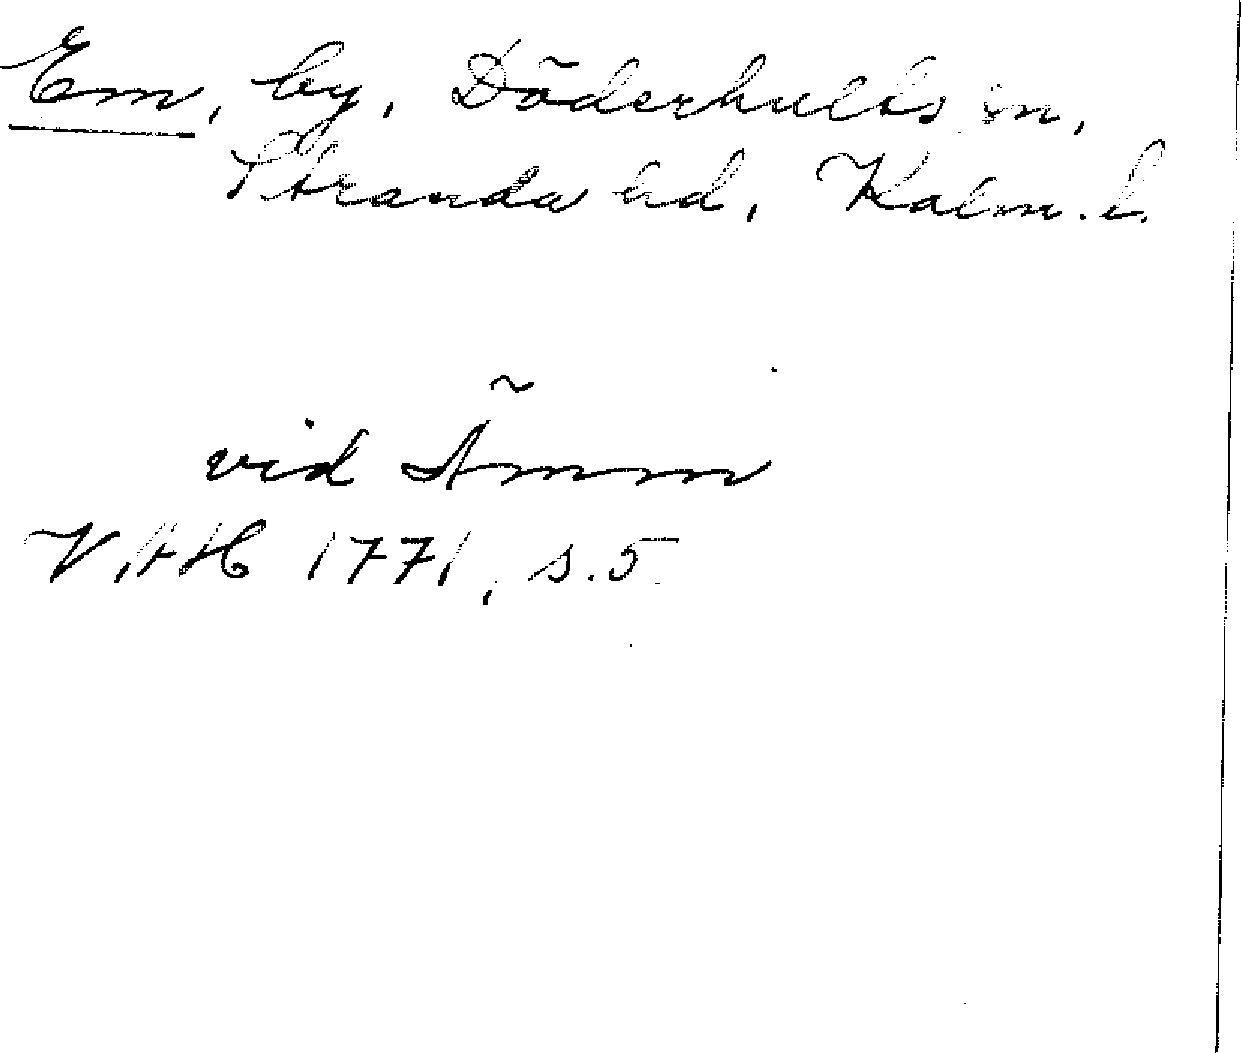 Em, by, Döderhults sn,
Stranda hd, Kalm. l.
vid Ämm
VAH 1771, s. 5